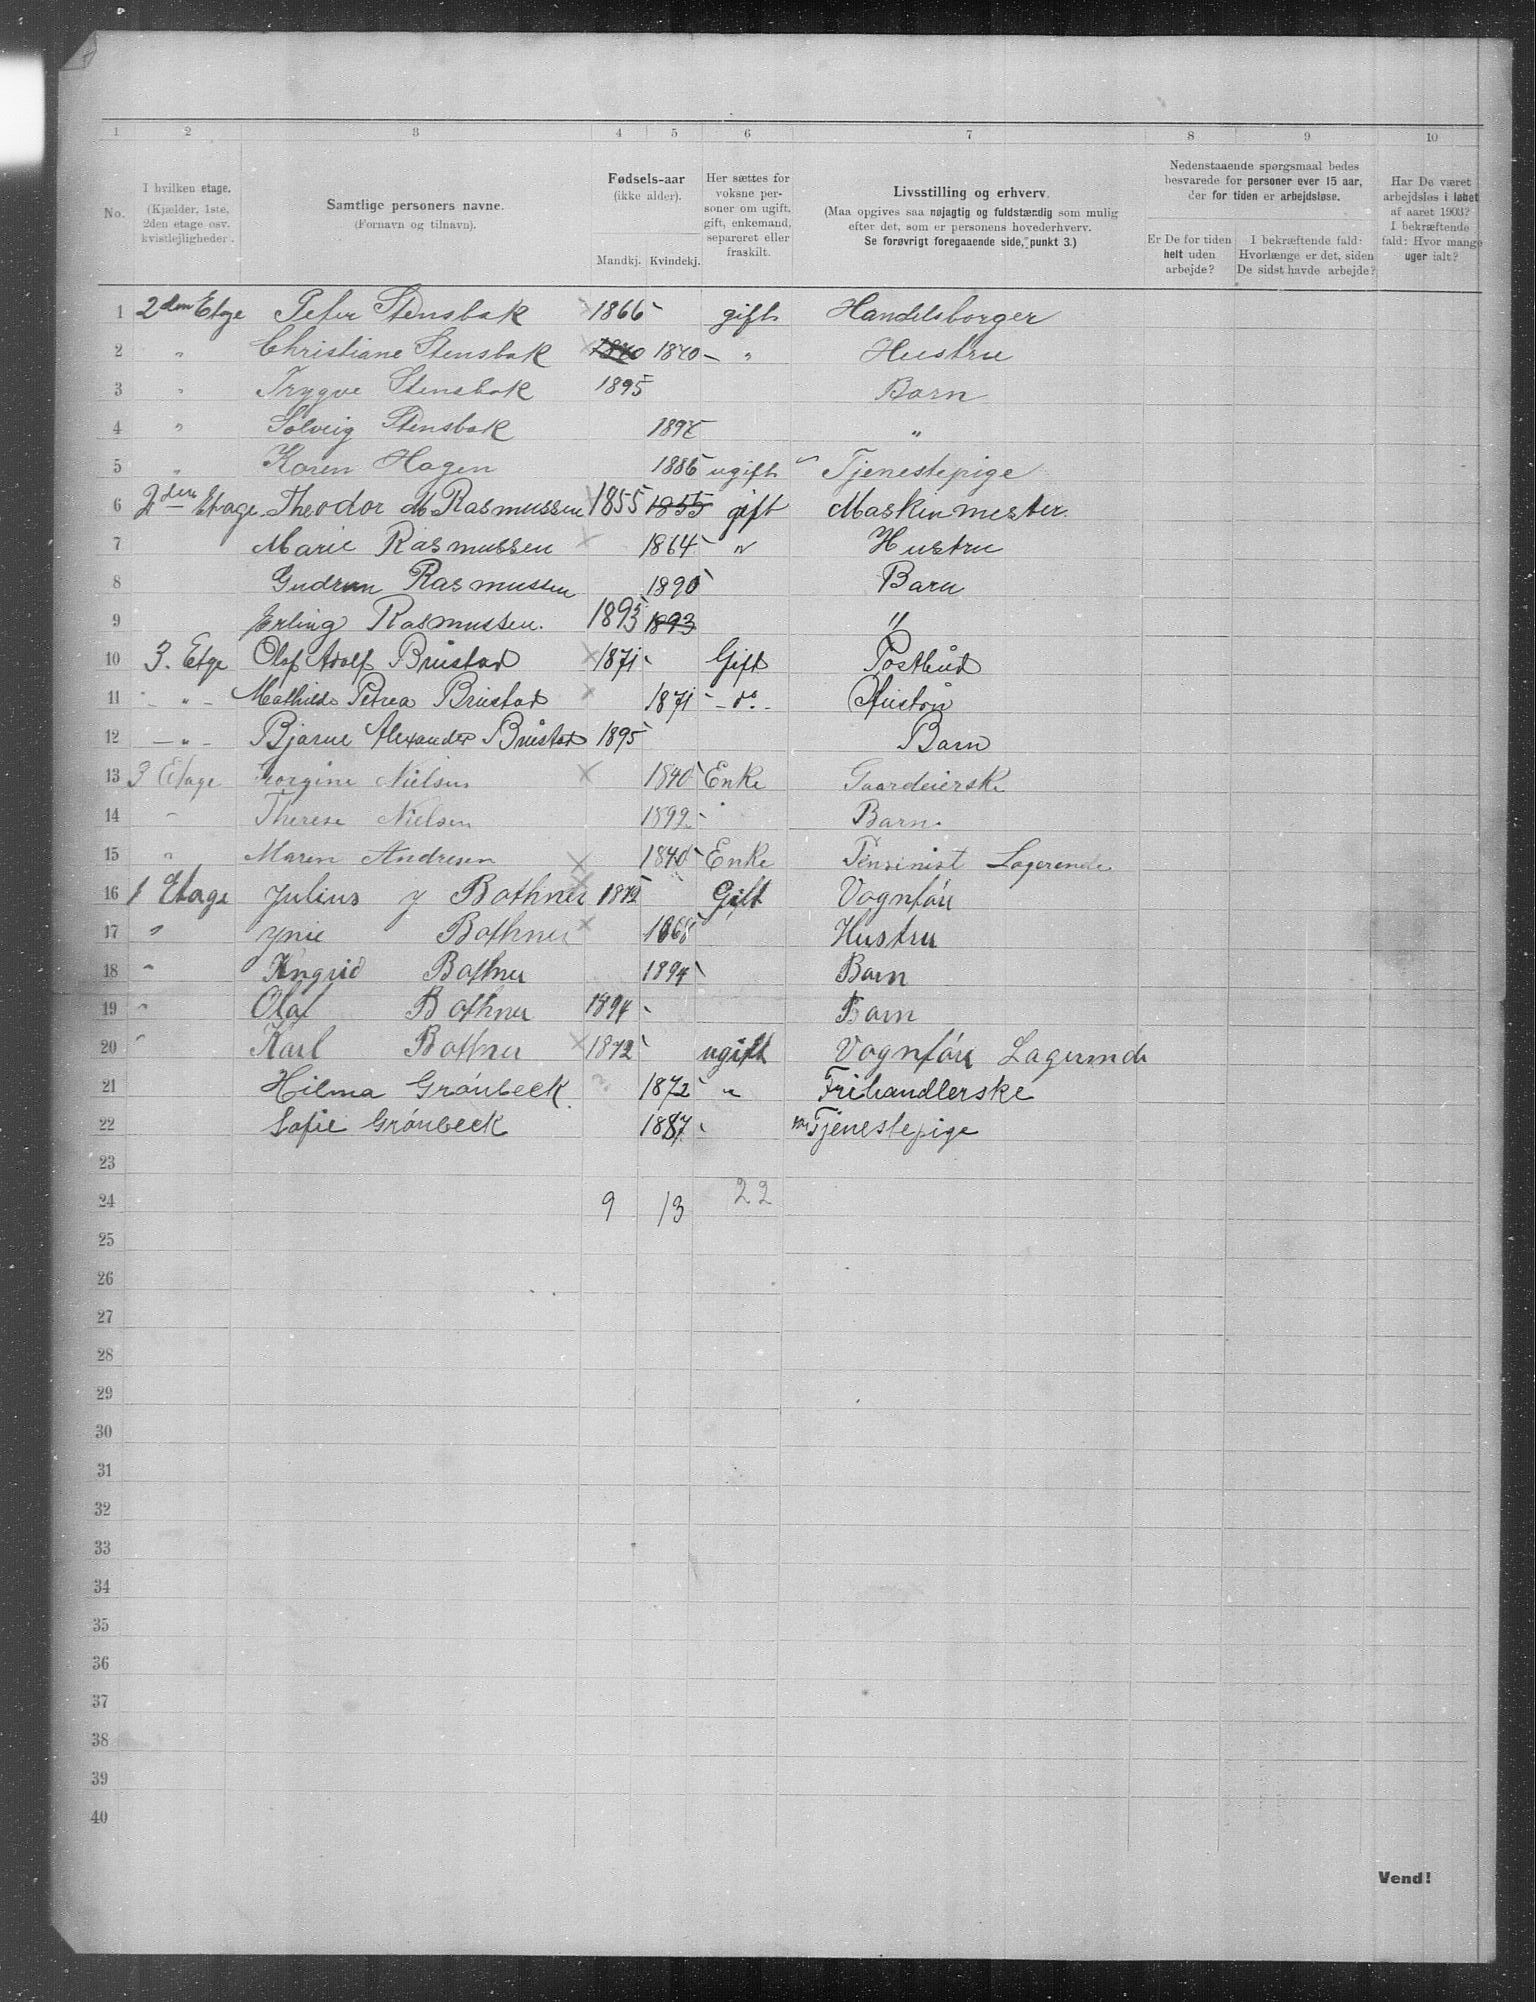 1 2 3 4 5 6 7 8 9 10
No.
I hvilken etage.
(Kjælder, 1ste,
2den etage osv.
kvistlejligheder.
Samtlige personers navne.
(Fornavn og tilnavn).
Fødsels-aar
(ikke alder).
Mandkj. Kvindekj.
Her sættes for
voksne per-
soner om ugift,
gift, enkemand,
separeret eller
fraskilt.
Livsstilling og erhverv.
(Maa opgives saa nøjagtig og fuldstændig som mulig
efter det, som er personens hovederhverv.
Se forøvrigt foregaaende side, punkt 3.)
Nedenstaaende spørgsmaal bedes
besvarede for personer over 15 aar,
der for tiden er arbejdsløse.
Er De for tiden
helt uden
arbejde?
I bekræftende fald:
Hvorlænge er det, siden
De sidst havde arbejde?
Har De været
arbejdsløs i løbet
af aaret 1903?
I bekræftende
fald: Hvor mange
uger ialt?
1 2den Etage Peter Stensbak 1866 gift Handelsborger
2 " Christiane Stensbak 1840 1840 " Hustru
3 " Trygve Stensbak 1895 Barn
4 " Solveig Stensbak "
5 " Karen Hagen 1886 ugift Tjenestepige
6 2den Etage Theodor M Rasmussen 1855 1855 gift Maskinmester
7 Marie Rasmussen 1864 " Hustru
8 Gudrun Rasmussen 1890 Barn
9 Erling Rasmussen. 1893 1893 "
10 3. Etge Olaf Adolf Brustad 1871 Gift Postbud
11 - " - Mathilde Petrea Brustad 1871 - do. -
12 - " - Bjarne Alexander Brustad 1895 Barn
13 3 Etage Georgine Nielsen 1840 Enke Gaardeierske
14 " Therese Nielsen 1892 Barn
15 " Maren Andresen 1840 Enke Pensinist Logerende
16 1 Etage Julius J Bothner 1872 Gift Vognfør
17 " Bothner 1868 Hustru
18 " Ingrid Bothner 1894 Barn
19 " Olaf Bothner 1894 Barn
20 " Karl Bothner 1872 ugift Vognfør Lagernde
21 Hilma Grønbeck. 1872 " Frihandlerske
22 Sofie Grønbeck 1887 Tjenestepige
23
24 9 13 22
25
26
27
28
29
30
31
32
33
34
35
36
37
38
39
40
Vend!